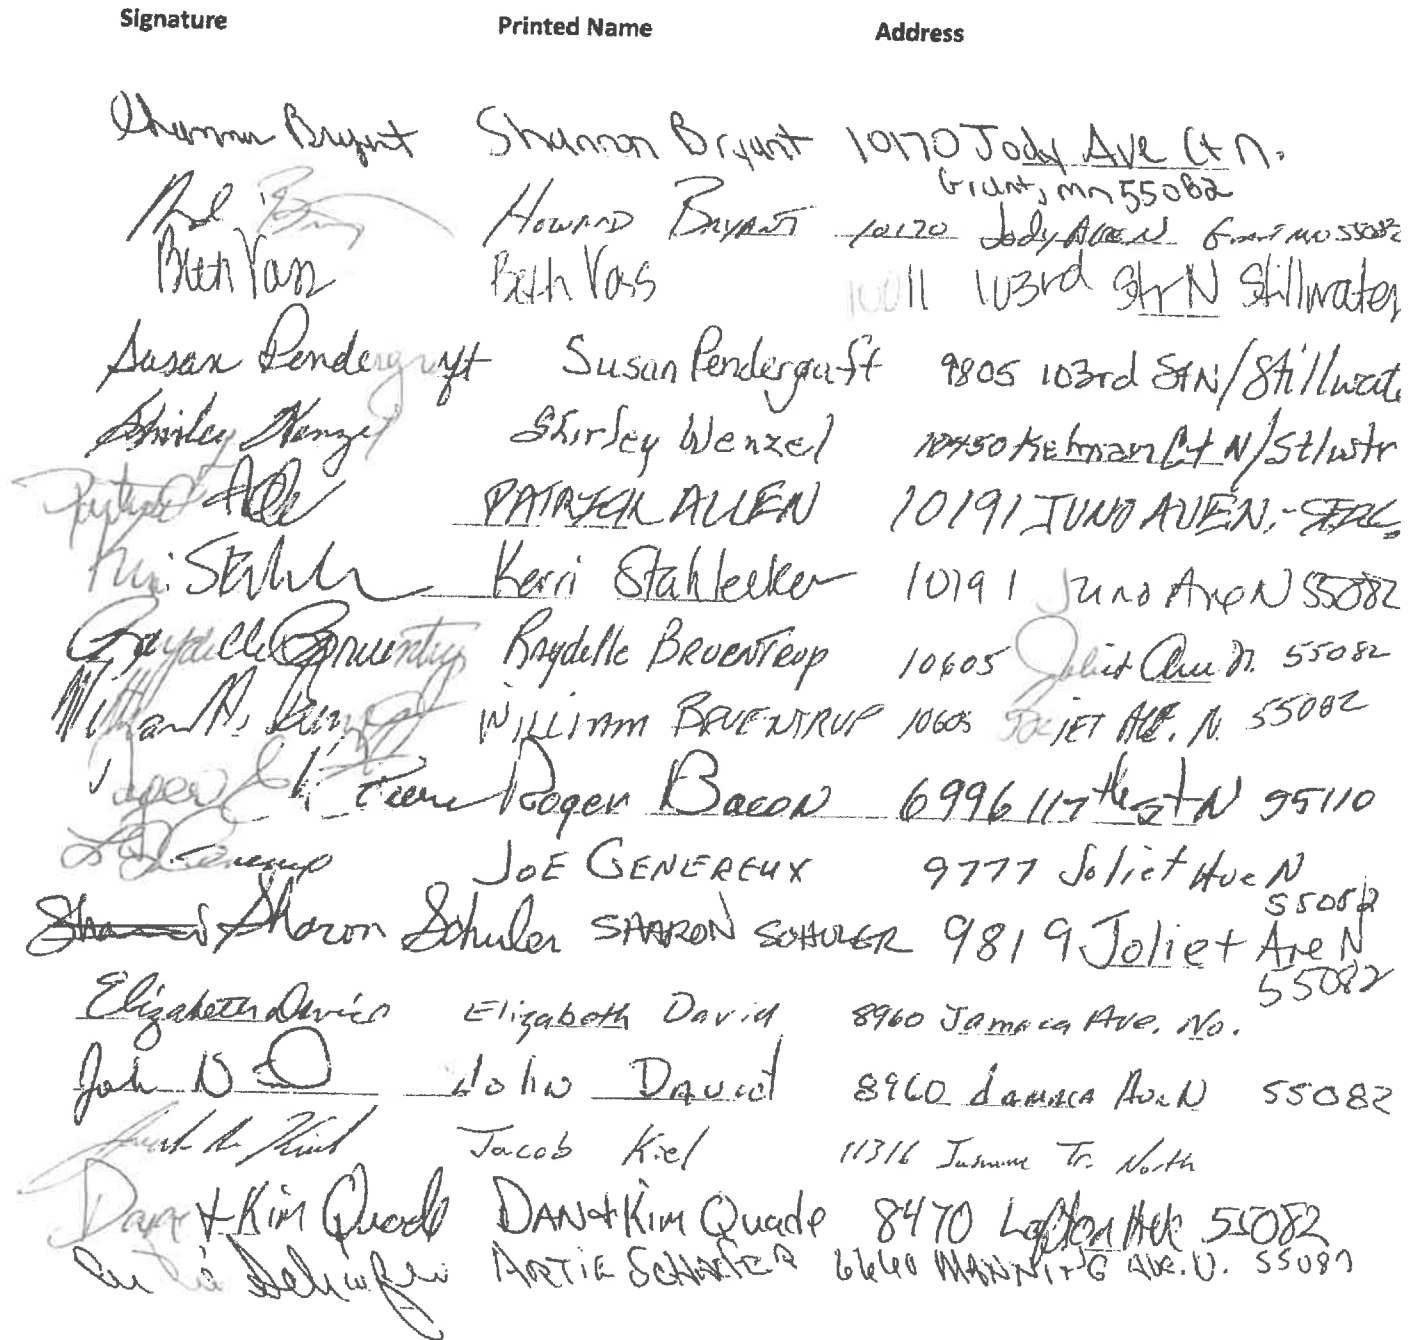 Signature Printed Name Address
Shannon Bryant Shannon Bryant 10170 Jody Ave Ct N.
Grant, mn 55082
Howard Bryant 10170 Jody Ave N Grant MN 55082
Beth Vass Beth Vass 10011 103rd Str N Stillwater
Susan Pendergraft Susan Pendergraft 9805 103rd St N/Stillwate
Shirley Wenzel Shirley Wenzel 10450 Kelman Ct N/Stlwtr
Patrick Allen PATRICK ALLEN 10191 JUNO AVE N.
Kerri Stahlecker Kerri Stahlecker 10191 Juno Ave N 55082
Raydelle Bruentrup Raydelle BRUENTRUP 10605 Joliet Ave N. 55082
William Bruentrup WILLIAM BRUENTRUP 10605 JOLIET AVE. N. 55082
Roger Bacon 6996 117th St N 55110
JOE GENEREUX 9777 Joliet Ave N
55082
Sharon Schuler SHARON SCHULER 9819 Joliet Ave N
55082
Elizabeth David Elizabeth David 8960 Jamaca Ave. No.
John D John David 8960 Jamaca Ave N 55082
Jacob Kiel 11316 Jasmine Tr. North
Dan + Kim Quade DAN + Kim Quade 8470 Lofton Ave 55082
Artie Schaefer ARTIE SCHAEFER 6640 MANNING AVE. N. 5508